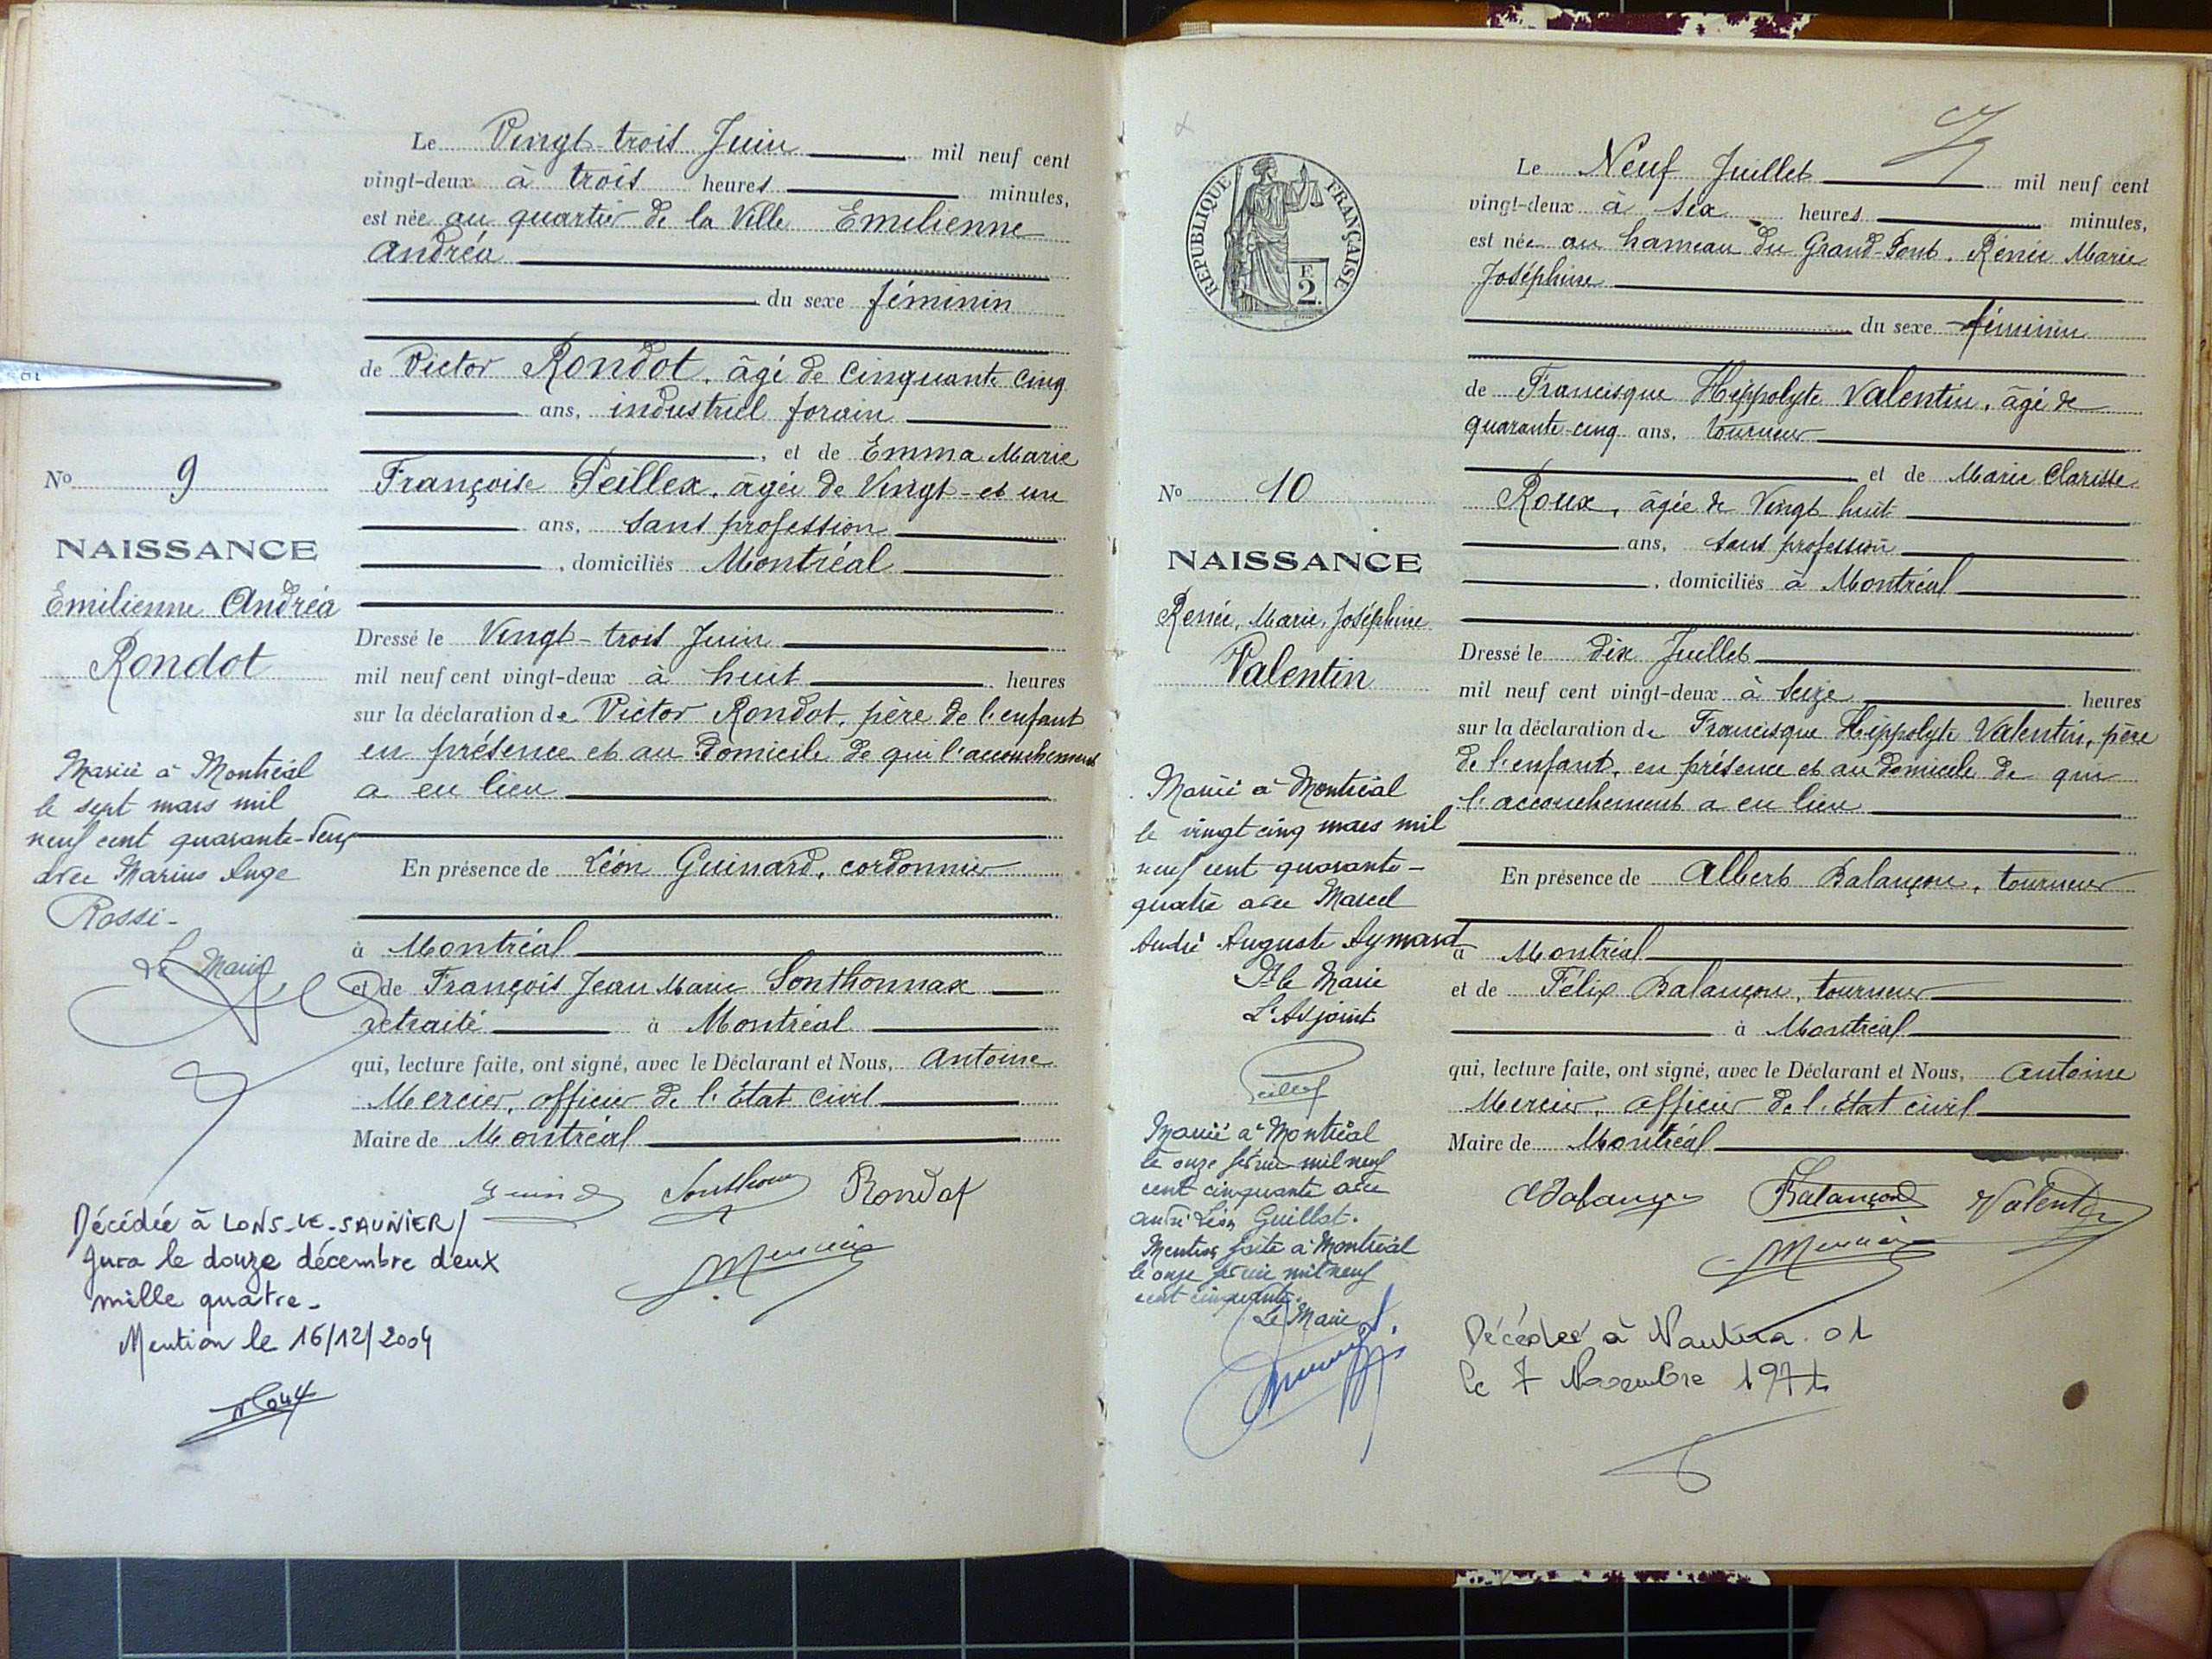 Le Vingt-trois Juin mil neuf cent
vingt-deux à trois heures minutes,
est née au quartier de la Ville Emilienne
Andréa
du sexe féminin
de Victor Rondot, âgé de Cinquante cinq
ans, industriel forain
, et de Emma Marie
Françoise Peillex, âgée de Vingt-et un
ans, sans profession
, domiciliés Montréal
Dressé le Vingt-trois Juin
mil neuf cent vingt-deux à huit heures
sur la déclaration de Victor Rondot, père de l'enfant
en présence et au domicile de qui l'accouchement
a eu lieu
En présence de Léon Guinard, cordonnier
à Montréal
et de François Jean Marie Sonthonnax
retraité à Montréal
qui, lecture faite, ont signé, avec le Déclarant et Nous, Antoine
Mercier, officier de l'État civil
Maire de Montréal
Sonthonax Rondot
Mercier
No 9
NAISSANCE
Emilienne Andréa
Rondot
Mariée à Montréal
le sept mars mil
neuf cent quarante-deux
avec Marius Ange
Rossi-
Le Maire,
Décédée à LONS-LE-SAUNIER/
Jura le douze décembre deux
mille quatre.
Mention le 16/12/2004
RÉPUBLIQUE FRANÇAISE
F.
2.
Le Neuf Juillet mil neuf cent
vingt-deux à six heures minutes,
est née au hameau du Grand-Pont. Rénée Marie
Joséphine
du sexe féminin
de Francisque Hippolyte Valentin, âgé de
quarante-cinq ans, tourneur
et de Marie Clarisse
Roux, âgée de Vingt huit
ans, sans profession
, domiciliés à Montréal
Dressé le dix Juillet
mil neuf cent vingt-deux à Seize heures
sur la déclaration de Francisque Hippolyte Valentin, père
de l'enfant, en présence et au domicile de qui
l'accouchement a eu lieu
En présence de Albert Balançon, tourneur
à Montréal
et de Félix Balançon, tourneur
à Montréal
qui, lecture faite, ont signé, avec le Déclarant et Nous, Antoine
Mercier, officier de l'État civil
Maire de Montréal
Balançon Valentin
Mercier
No 10
NAISSANCE
Renée, Marie, Joséphine
Valentin
Mariée à Montréal
le vingt cinq mars mil
neuf cent quarante-
quatre avec Marcel
André Auguste Aymard
Pr le Maire
L'Adjoint
Mariée à Montréal
le onze février mil neuf
cent cinquante avec
André Léon Guillot.
Mention faite à Montréal
le onze février mil neuf
cent cinquante.
Le Maire
Décédée à Nantua. 01
le 7 Novembre 1971